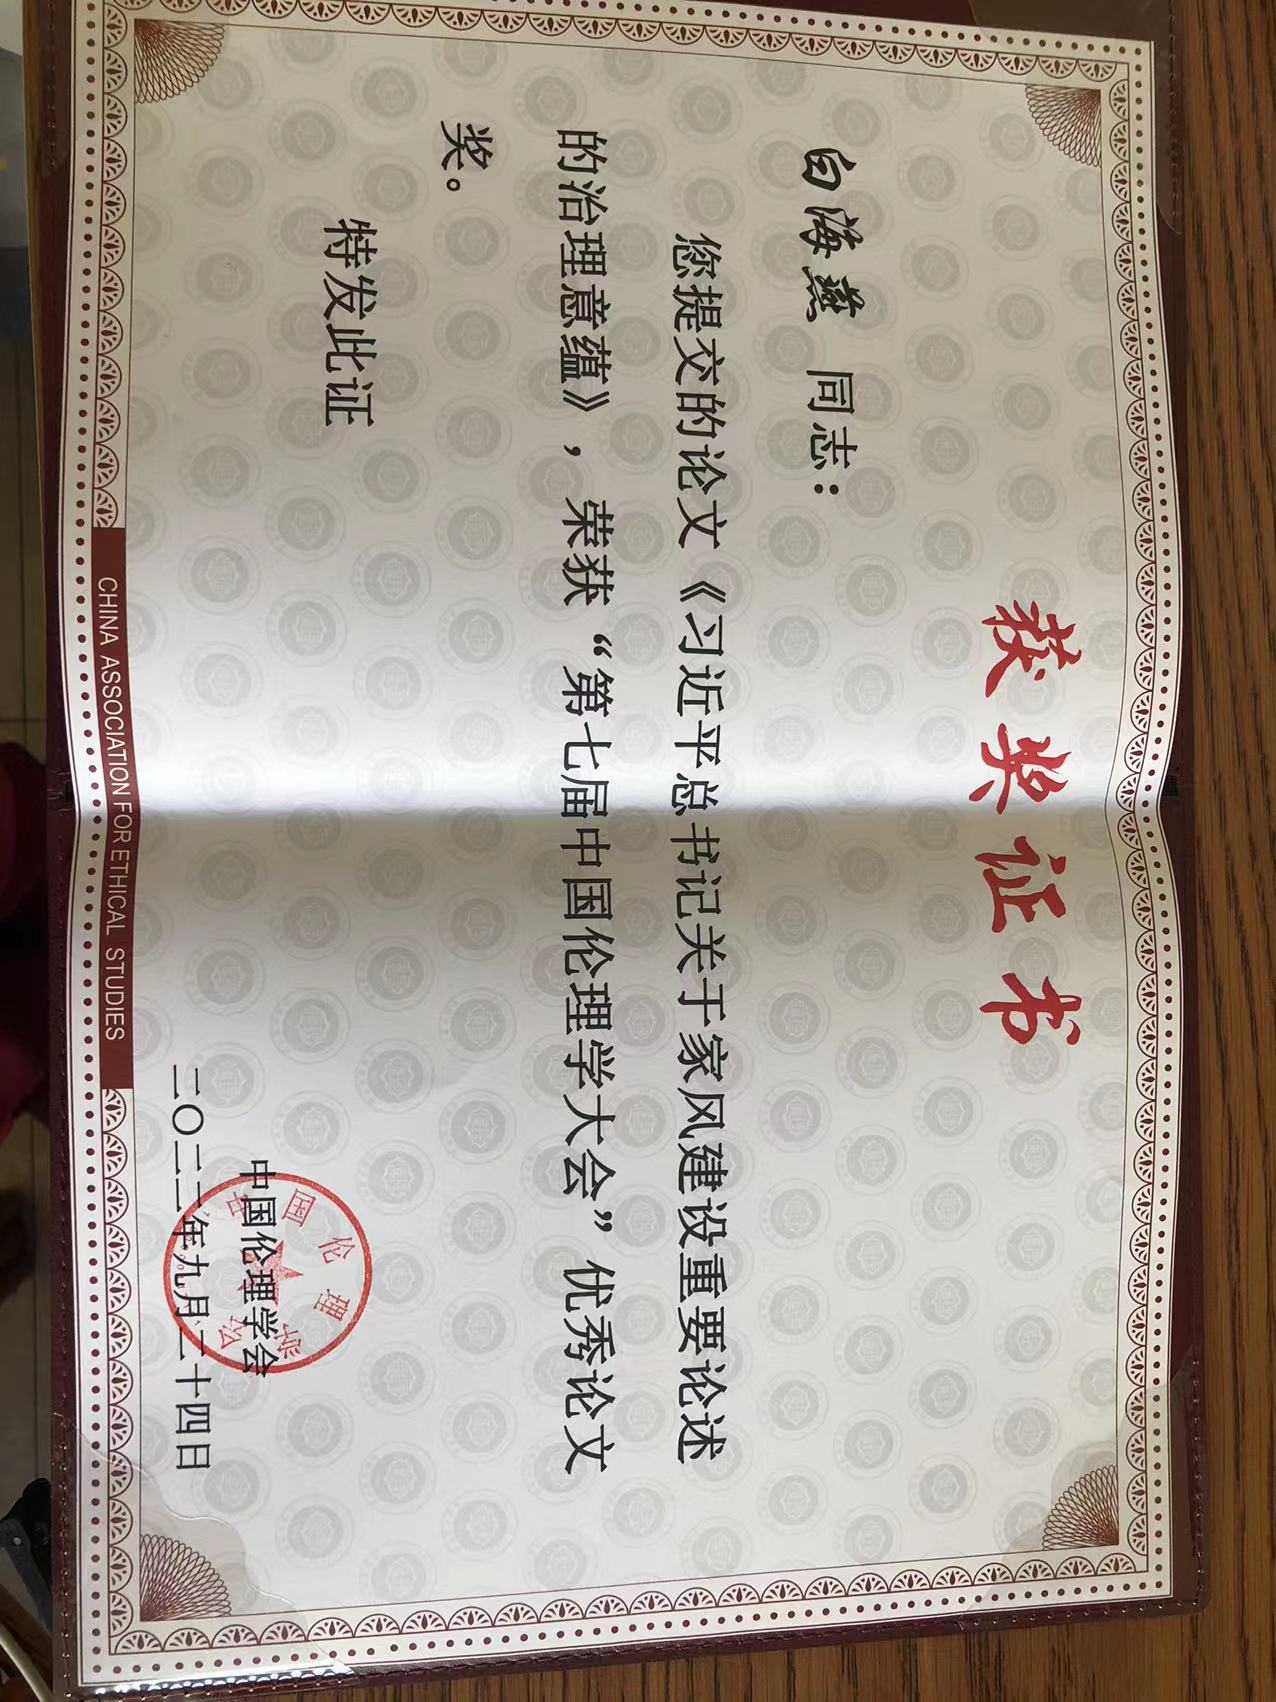 获奖证书
白海燕 同志：
您提交的论文《习近平总书记关于家风建设重要论述
的治理意蕴》，荣获“第七届中国伦理学大会”优秀论文
奖。
特发此证
中国伦理学会
中国伦理学会
二〇二二年九月二十四日
CHINA ASSOCIATION FOR ETHICAL STUDIES